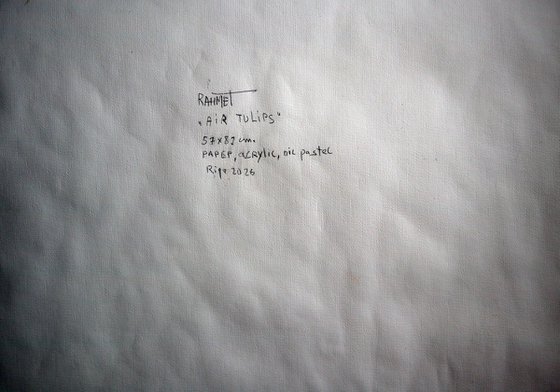 RAHMET
"AiR TULiPS"
57x82 cm.
PAPEP, acRylic, oil pastel
Riga 2026